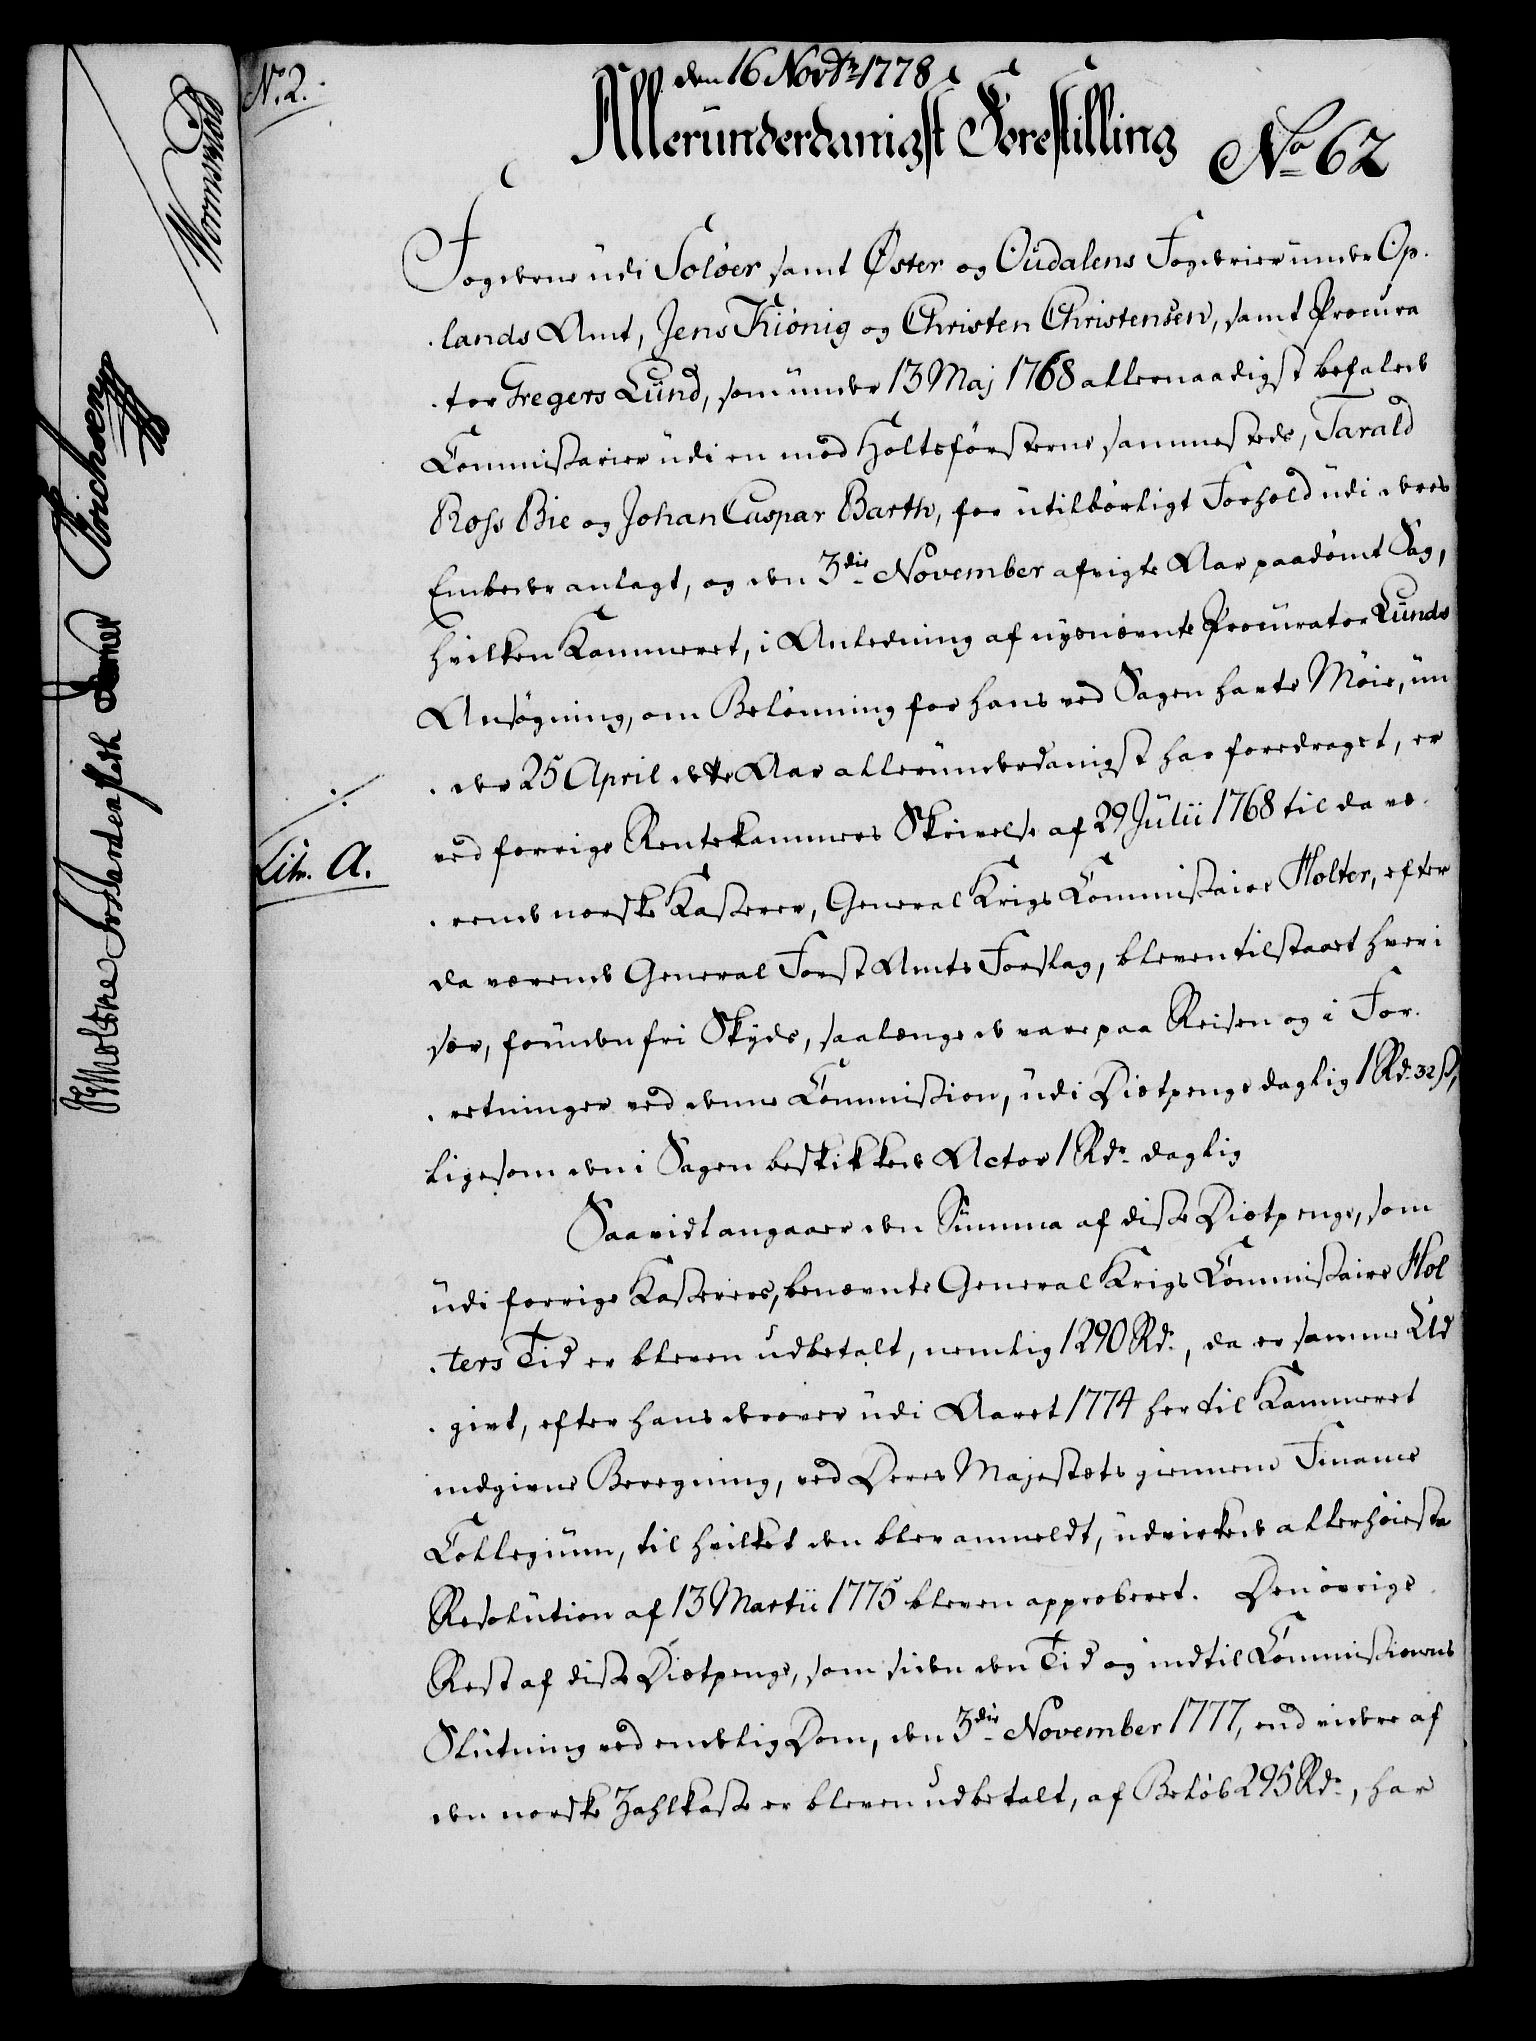 N. 2.
den 16 Novbr 1778
Allerunderdanigst Forestilling
No 62
Fogderne udi Soløer samt Øster og Oudalens Fogderier under Op-
lands Amt, Jens Kiönig og Christen Christensen, samt Procura
tor Gregers Lund, som under 13 Maj 1768 allernaadigst befalede
Commissarier udi en mod Holtsförsterne sammesteds, Tarald
Ross Bie og Johan Caspar Barth, for utilbörligt Forhold udi deres
Embeder anlagt, og den 3die November afvigte Aar paadömt Sag,
hvilken Kammeret, i Anledning af nysnævnte Procurator Lunds
Ansögning, om Belönning for hans ved Sagen havte Möie, un
der 25 April dette Aar allerunderdanigst har foredraget, er
ved forrige Rentekammers Skrivelse af 29 Julii 1768 til da væ-
Litr. A.
rende norske Kasserer, General Krigs Commissaire Holter, efter
da værende General Forst Amts Forslag, bleven tilstaaet hver i
sær, foruden fri Skyds, saalænge de vare paa Reisen og i For-
retninger ved denne Commission, udi Diætpenge daglig 1 Rd. 32 s,
ligesom den i Sagen beskikkede Actor 1 Rdr daglig
Saavidt angaaer den Summa af disse Diætpenge, som
udi forrige Kasserers, benævnte General Krigs Commissaire Hol
ters Tid er bleven udbetalt, nemlig 1290 Rdr, da er samme Ud
givt, efter hans derover udi Aaret 1774 her til Kammeret
indgivne Beregning, ved Deres Majestæts giennem Finance
Collegium, til hvilket den blev anmeldt, udvirkede allerhöieste
Resolution af 13 Martii 1775 bleven approberet. Den övrige
Rest af disse Diætpenge, som siden den Tid og indtil Commissionens
Slutning ved endelig Dom, den 3die November 1777, end videre af
den norske Zahlkasse er bleven udbetalt, af Belöb 295 Rdr, har
Wormskiold